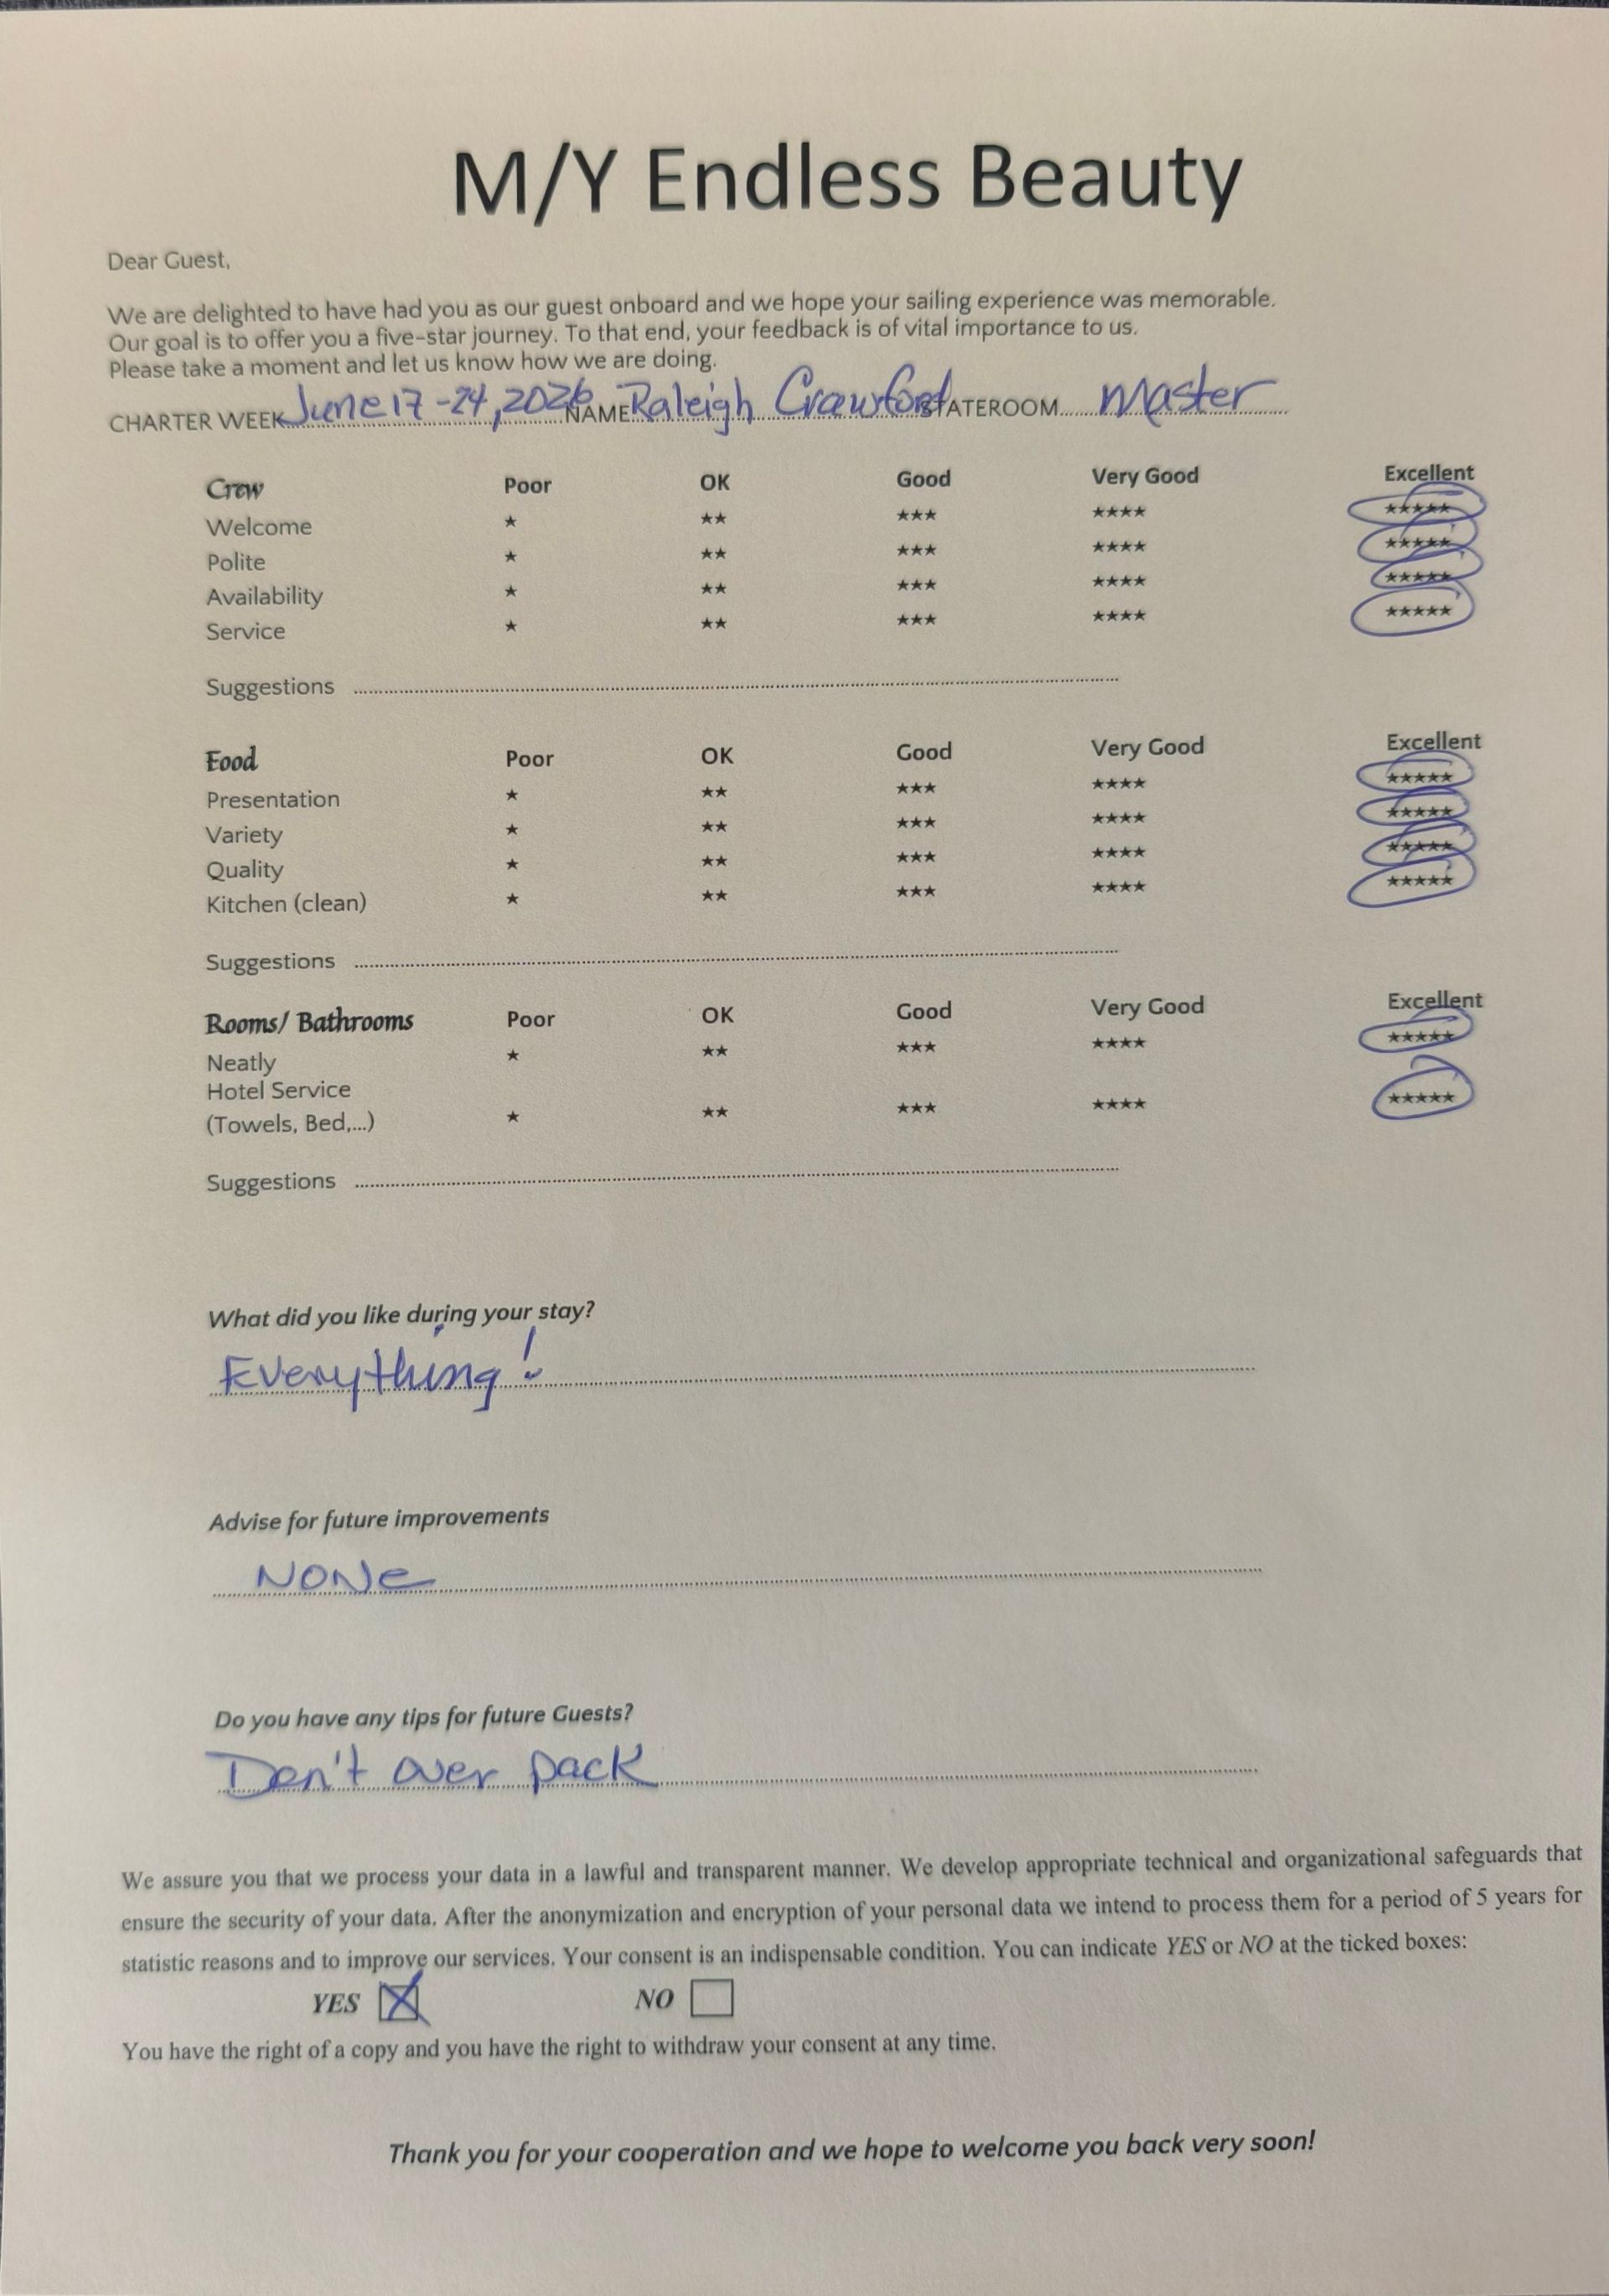 M/Y Endless Beauty
Dear Guest,
We are delighted to have had you as our guest onboard and we hope your sailing experience was memorable.
Our goal is to offer you a five-star journey. To that end, your feedback is of vital importance to us.
Please take a moment and let us know how we are doing.
CHARTER WEEK June 17-24, 2026 NAME Raleigh Crawford STATEROOM Master
Crew Poor OK Good Very Good Excellent
Welcome ★ ★★ ★★★ ★★★★ ★★★★★
Polite ★ ★★ ★★★ ★★★★ ★★★★★
Availability ★ ★★ ★★★ ★★★★ ★★★★★
Service ★ ★★ ★★★ ★★★★ ★★★★★
Suggestions
Food Poor OK Good Very Good Excellent
Presentation ★ ★★ ★★★ ★★★★ ★★★★★
Variety ★ ★★ ★★★ ★★★★ ★★★★★
Quality ★ ★★ ★★★ ★★★★ ★★★★★
Kitchen (clean) ★ ★★ ★★★ ★★★★ ★★★★★
Suggestions
Rooms/ Bathrooms Poor OK Good Very Good Excellent
Neatly ★ ★★ ★★★ ★★★★ ★★★★★
Hotel Service
(Towels, Bed,...) ★ ★★ ★★★ ★★★★ ★★★★★
Suggestions
What did you like during your stay?
Everything!
Advise for future improvements
NONe
Do you have any tips for future Guests?
Don't over pack
We assure you that we process your data in a lawful and transparent manner. We develop appropriate technical and organizational safeguards that
ensure the security of your data. After the anonymization and encryption of your personal data we intend to process them for a period of 5 years for
statistic reasons and to improve our services. Your consent is an indispensable condition. You can indicate YES or NO at the ticked boxes:
YES NO
You have the right of a copy and you have the right to withdraw your consent at any time.
Thank you for your cooperation and we hope to welcome you back very soon!